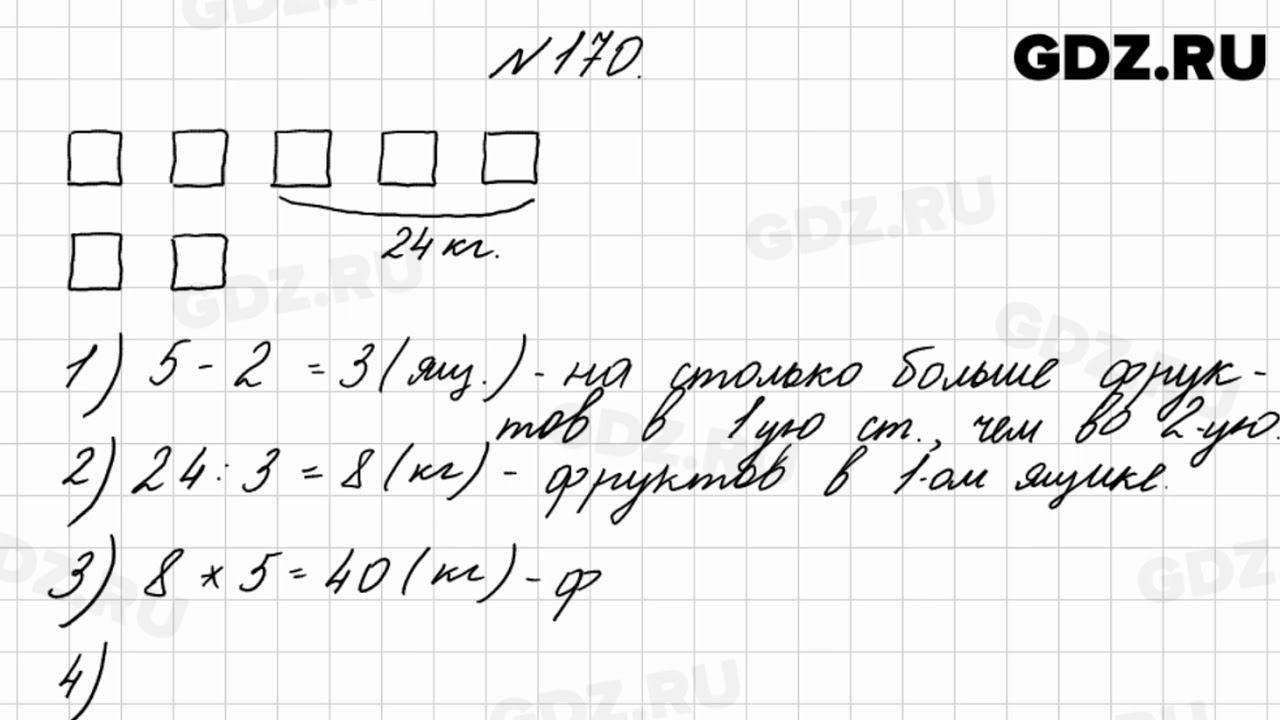 №170.
GDZ.RU
24 кг.
1) 5 - 2 = 3 (ящ.) - на столько больше фрук-
тов в 1ую ст., чем во 2-ую.
2) 24 : 3 = 8 (кг) - фруктов в 1-ом ящике.
3) 8 * 5 = 40 (кг) - ф
4)